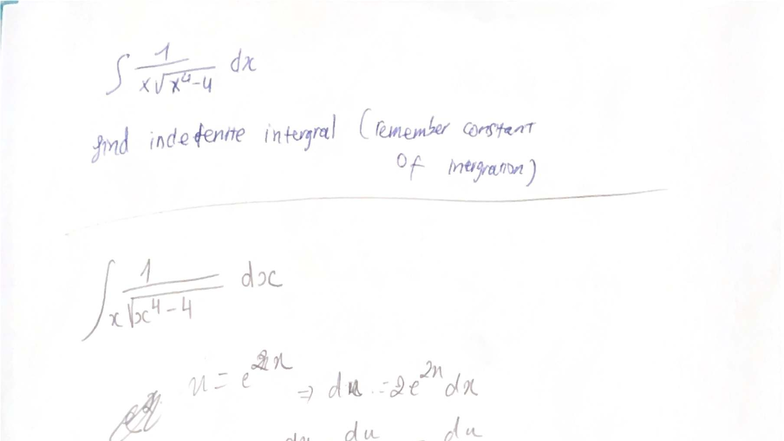 ∫ 1/(x√(x⁴-4)) dx
find indefenite intergral (remember constant
Of intergration)
∫ 1/(x√(x⁴-4)) dx
u = e^{2x} ⇒ du = 2e^{2x} dx
du du